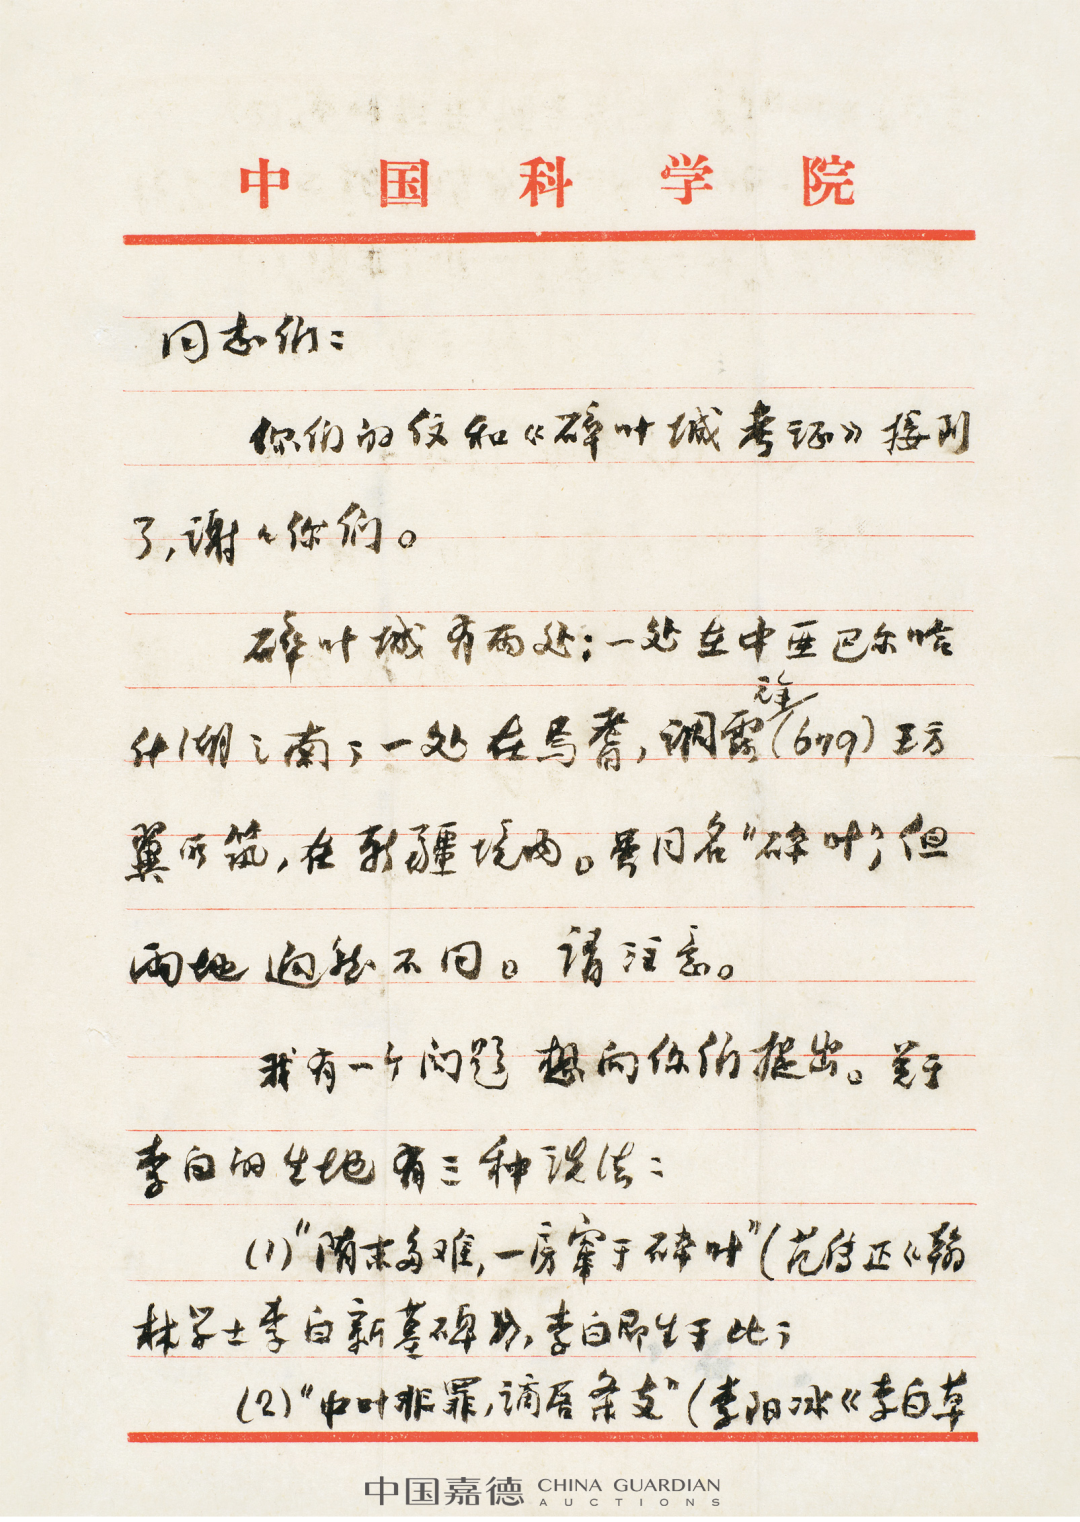 中国科学院
同志们：
你们的信和《碎叶城考证》接到
了，谢々你们。
碎叶城有两处：一处在中亚巴尔喀
什湖之南；一处在焉耆，调露元年(679)王方
翼所筑，在新疆境内。虽同名“碎叶”，但
两地迥然不同。请注意。
我有一个问题想向你们提出。关于
李白的生地有三种说法：
(1)“隋末多难，一房窜于碎叶”(范传正《翰
林学士李白新墓碑》)，李白即生于此；
(2)“中叶非罪，谪居条支”(李阳冰《李白草
中国嘉德 CHINA GUARDIAN
AUCTIONS